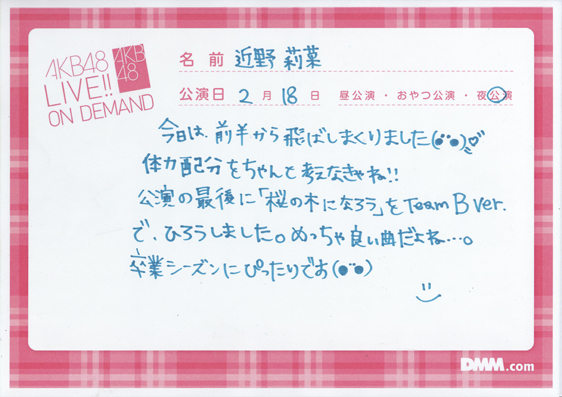 AKB48
LIVE!!
ON DEMAND
AKB
48
名 前 近野 莉菜
公演日 2 月 18 日 昼公演・おやつ公演・夜公演
今日は、前半から飛ばしまくりました(●¨●)♡
体力配分をちゃんと考えなきゃね!!
公演の最後に「桜の木になろう」をTeam B ver.
で、ひろうしました。めっちゃ良い曲だよね…。
卒業シーズンにぴったりです(●¨●)
DMM.com